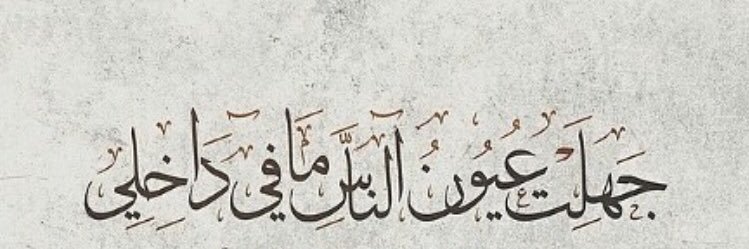 جَهِلَت عُيُونُ النَّاسِ مَا فِي دَاخِلِي